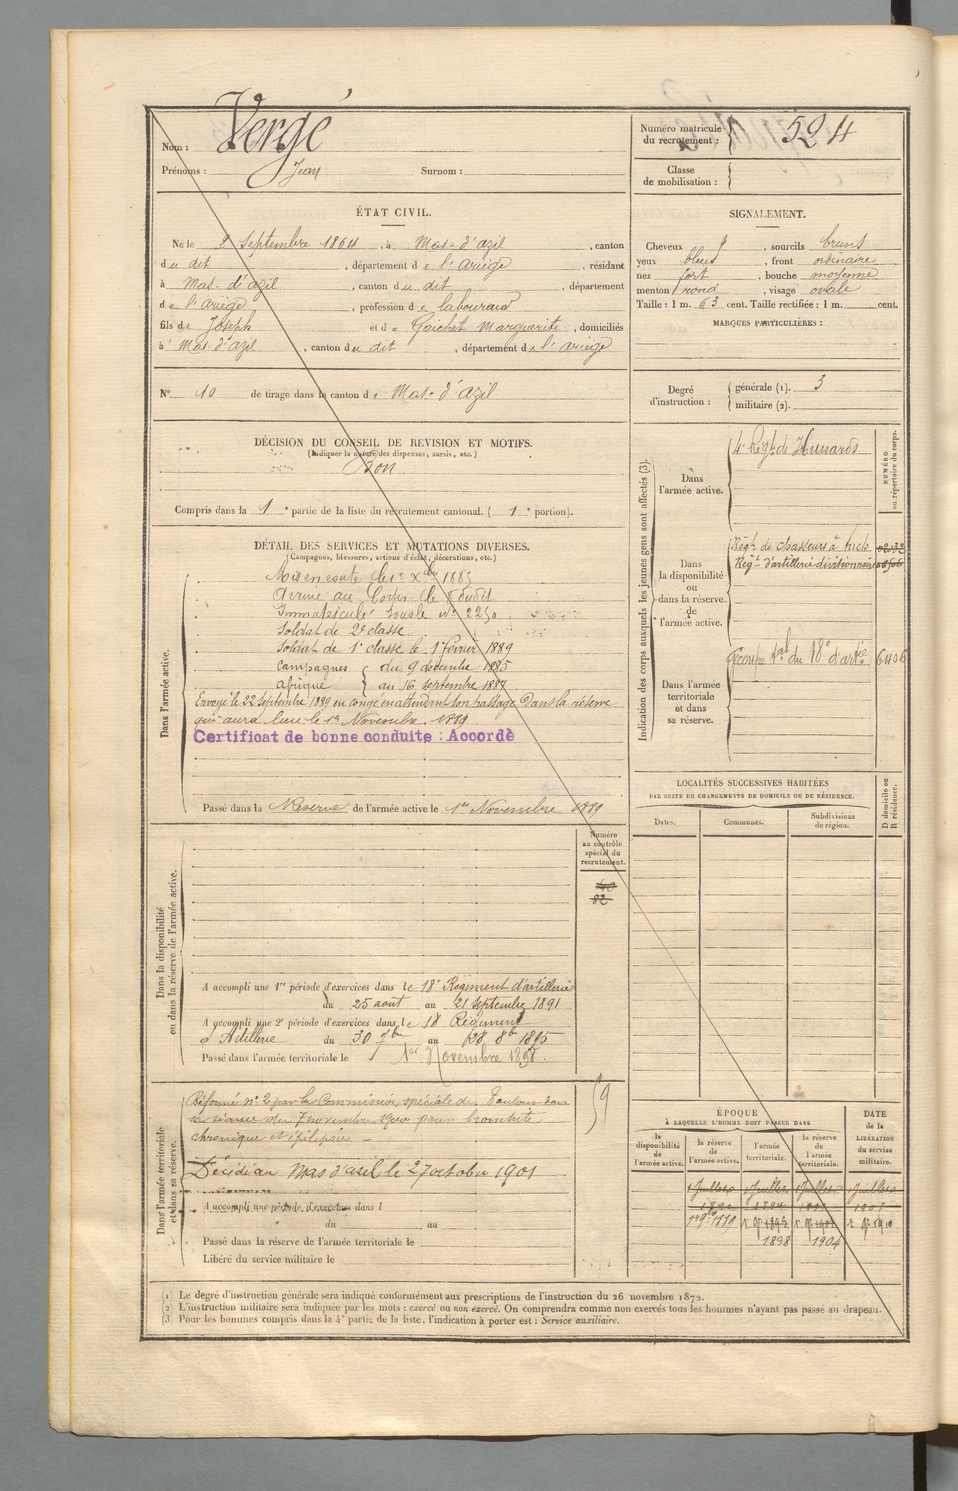 Nom : Vergé
Prénoms : Jean Surnom :
Numéro matricule du recrutement : 524
Classe de mobilisation :
ÉTAT CIVIL.
Né le 2 Septembre 1864, à Mas-d'azil, canton
du dit, département de l'ariège, résidant
à Mas-d'azil, canton du dit, département
de l'ariège, profession de laboureur
fils de Joseph et de Gaichet Marguerite, domiciliés
à Mas-d'azil, canton du dit, département de l'ariège
N° 10 de tirage dans le canton de Mas-d'azil
SIGNALEMENT.
Cheveux , sourcils bruns
yeux bleus, front ordinaire
nez fort, bouche moyenne
menton rond, visage ovale
Taille : 1 m. 63 cent. Taille rectifiée : 1 m. cent.
MARQUES PARTICULIÈRES :
Degré d'instruction : générale (1). 3
militaire (2).
DÉCISION DU CONSEIL DE REVISION ET MOTIFS.
(Indiquer la nature des dispenses, sursis, etc.)
Bon
Compris dans la 1e partie de la liste du recrutement cantonal. (1e portion).
DÉTAIL DES SERVICES ET MUTATIONS DIVERSES.
(Campagnes, blessures, actions d'éclat, décorations, etc.)
Dans l'armée active.
Mis en route le 1er Xbre 1885
Arrivé au Corps le dudit
Immatriculé sous le n° 2250
Soldat de 2e classe
Soldat de 1e classe le 1er février 1889
Campagnes { du 9 décembre 1885
Afrique } au 16 septembre 1887
Envoyé le 22 septembre 1889 en congé en attendant son passage dans la réserve
qui aura lieu le 1er Novembre 1889
Certificat de bonne conduite : Accordé
Passé dans la Réserve de l'armée active le 1er Novembre 1889
Indication des corps auxquels les jeunes gens sont affectés (3).
NUMÉRO au répertoire du corps.
Dans l'armée active.
4e Régt de Hussards
Dans la disponibilité ou dans la réserve de l'armée active.
Régt de chasseurs à
Régt d'artillerie divisionnaire
Dans l'armée territoriale et dans sa réserve.
Groupe tal du 18e d'artie 6406
LOCALITÉS SUCCESSIVES HABITÉES
PAR SUITE DE CHANGEMENTS DE DOMICILE OU DE RÉSIDENCE.
D domicile ou R résidence.
Dates. Communes. Subdivisions de région.
Numéro au contrôle spécial du recrutement.
82
Dans la disponibilité ou dans la réserve de l'armée active.
A accompli une 1re période d'exercices dans le 18e Régiment d'artillerie
du 25 août au 21 septembre 1891
A accompli une 2e période d'exercices dans le 18 Régiment
d'Artillerie du 30 7bre au 8bre 1895
Passé dans l'armée territoriale le 1er Novembre 1898.
Dans l'armée territoriale et dans sa réserve.
59
Réformé n° 2 par la Commission spéciale de Toulouse dans
sa séance du 7 novembre 1900 pour bronchite
chronique et épilepsie
Décidé au Mas d'azil le 27 octobre 1901
A accompli une période d'exercices dans l
du au
Passé dans la réserve de l'armée territoriale le
Libéré du service militaire le
ÉPOQUE
A LAQUELLE L'HOMME DOIT PASSER DANS
DATE de la LIBÉRATION du service militaire.
la disponibilité de l'armée active.
la réserve de l'armée active.
l'armée territoriale.
la réserve de l'armée territoriale.
1 Juillet
1898 1904
(1) Le degré d'instruction générale sera indiqué conformément aux prescriptions de l'instruction du 26 novembre 1872.
(2) L'instruction militaire sera indiquée par les mots : exercé ou non exercé. On comprendra comme non exercés tous les hommes n'ayant pas passé au drapeau.
(3) Pour les hommes compris dans la 4e partie de la liste, l'indication à porter est : Service auxiliaire.